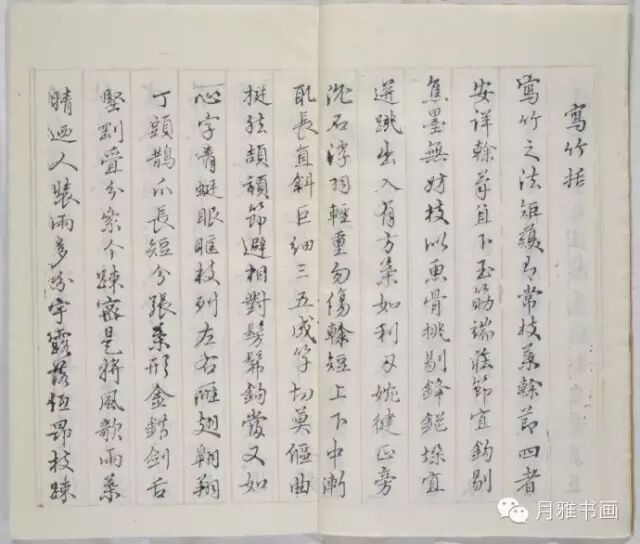 寫竹括
寫竹之法矩矱有常枝葉幹節四者
安詳幹若自下玉筋端臨節宜鈎剔
焦墨無妨枝以魚骨挑剔鋒鋩垛宜
迸跳出入有方葉如利刃婉健正旁
沉石浮羽輕重勿傷幹短上下中漸
放長直斜巨細三五成竿切莫傴曲
挺然頡頏節避相對鬍鬚鈎當又如
心字蜻蜓眼眶枝列左右雁翅翱翔
丁頭鵲爪長短分張葉形金錯劍舌
堅剛疊分葉个疎密是將風欹雨葉
晴迎人裝雨多分字露落恆昂枝疎
月雅书画